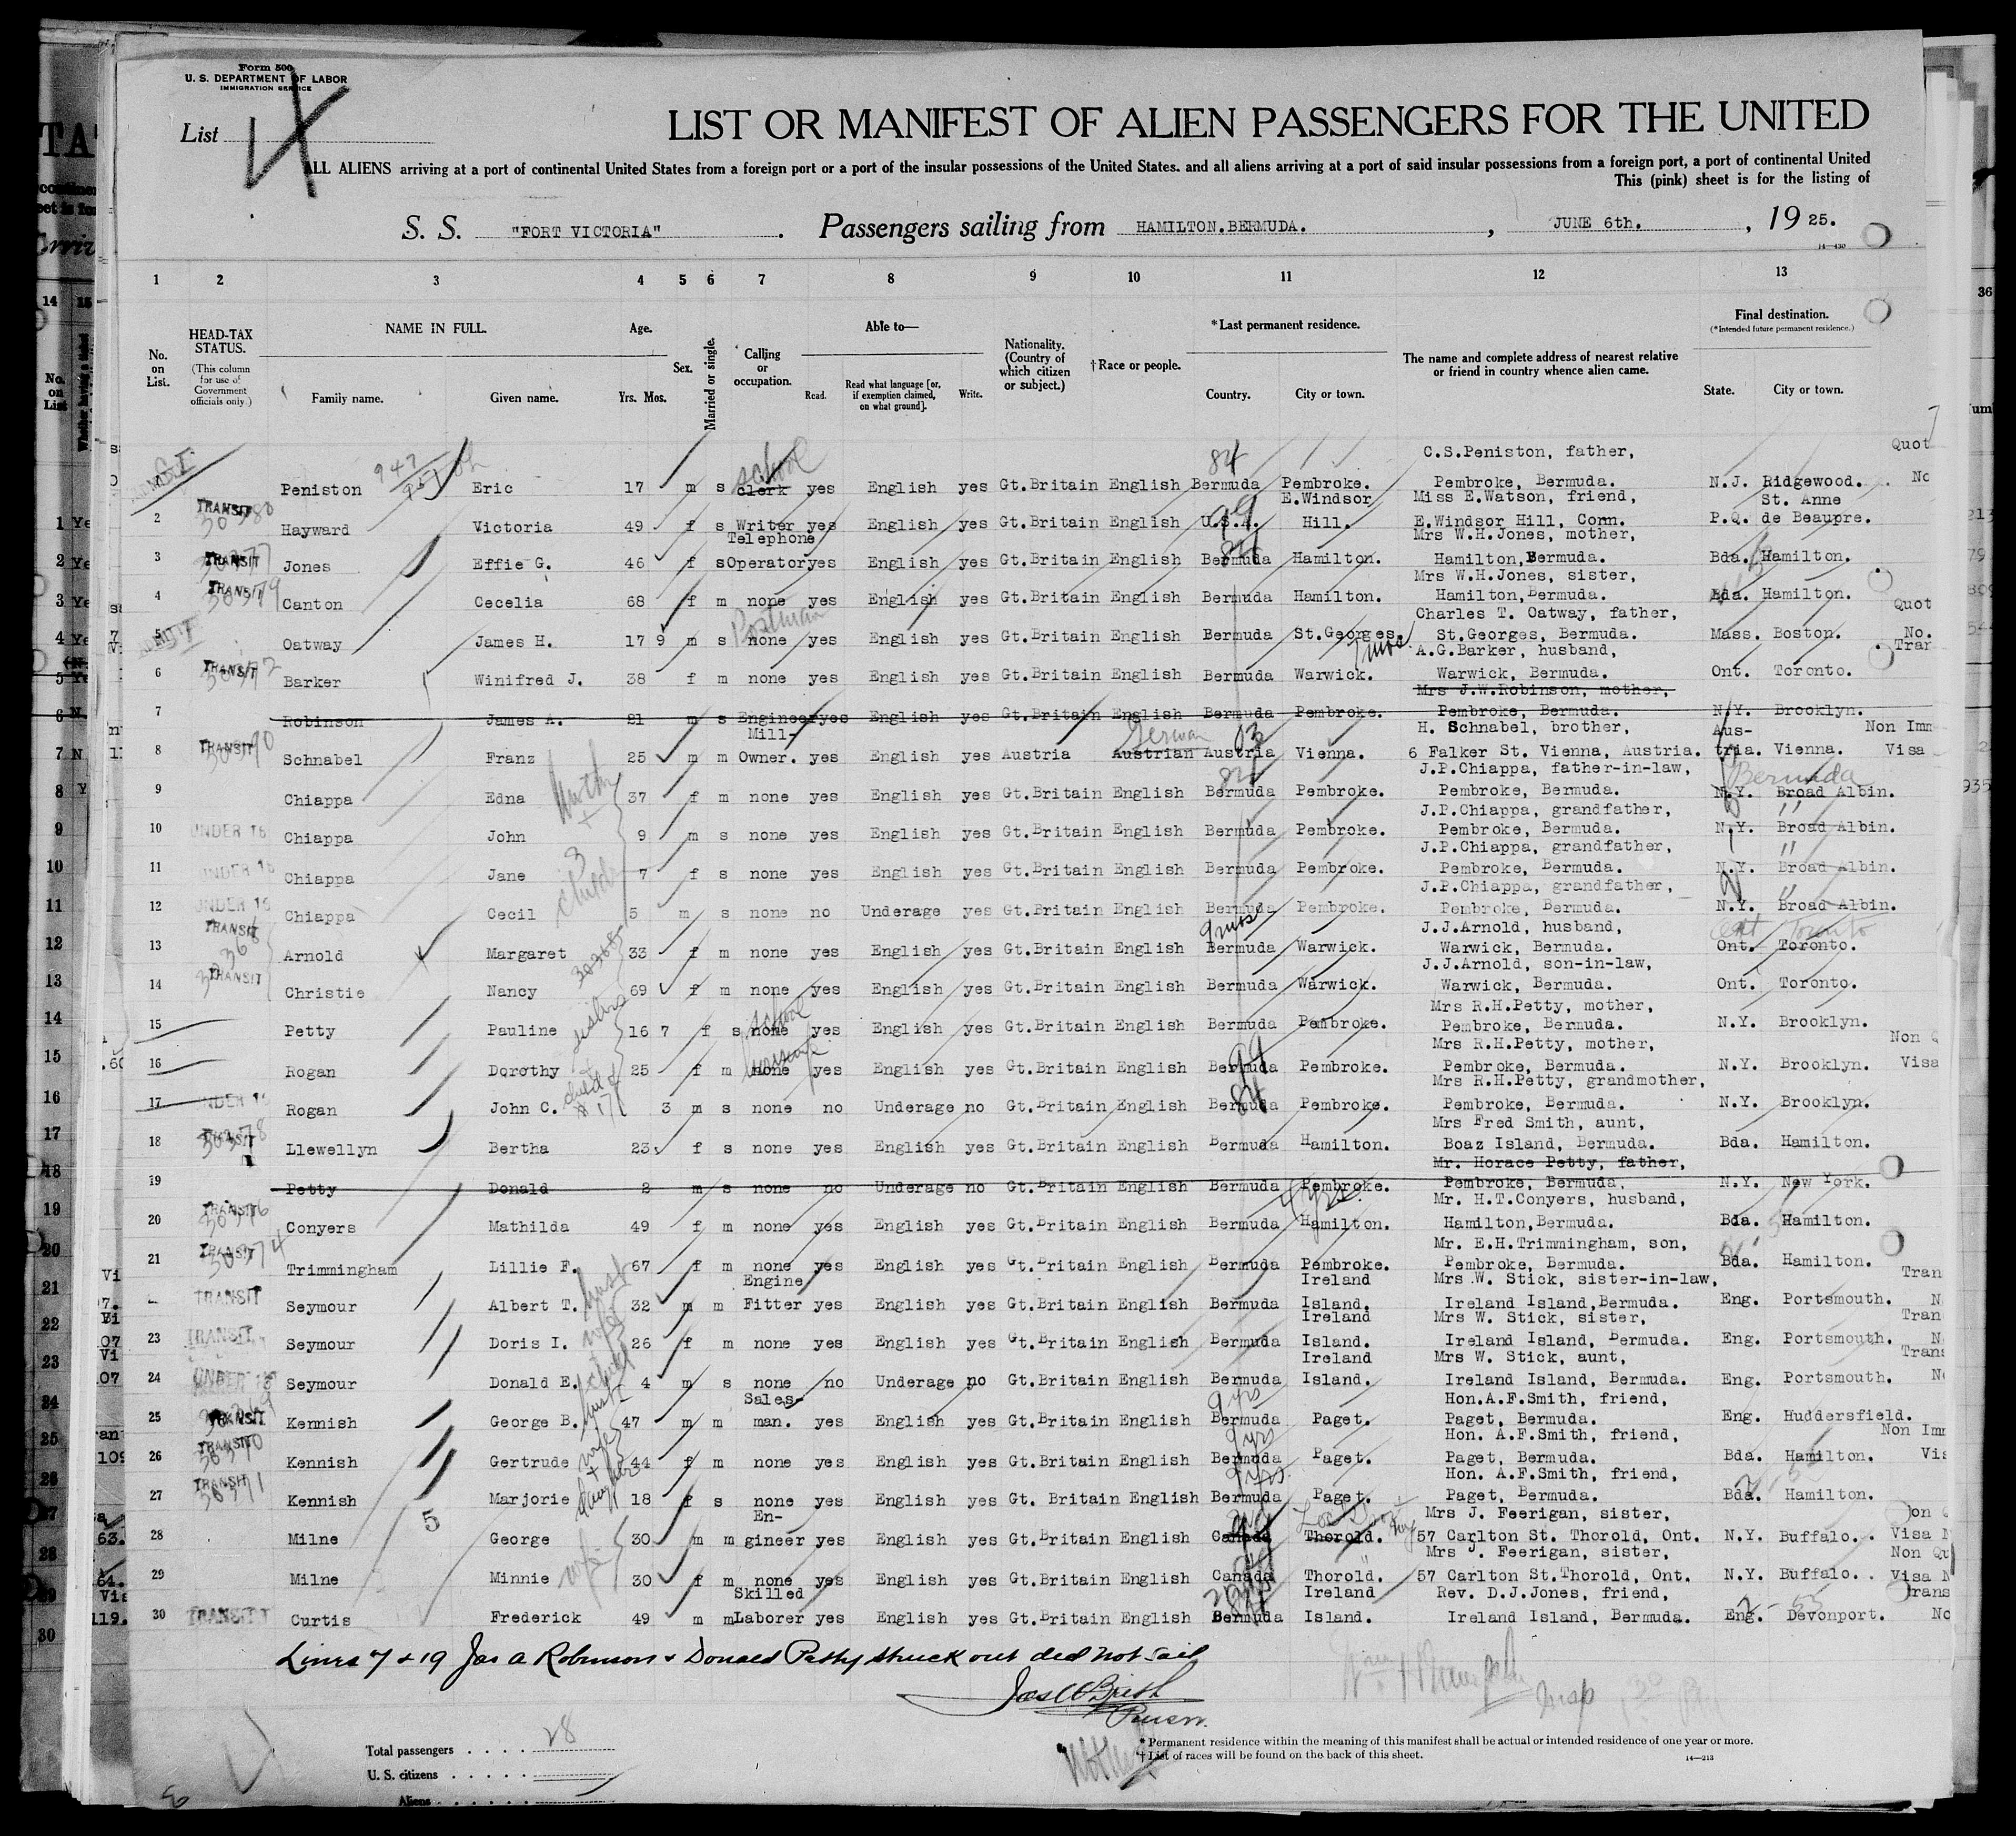 Form 500
U. S. DEPARTMENT OF LABOR
IMMIGRATION SERVICE
List
LIST OR MANIFEST OF ALIEN PASSENGERS FOR THE UNITED
ALL ALIENS arriving at a port of continental United States from a foreign port or a port of the insular possessions of the United States. and all aliens arriving at a port of said insular possessions from a foreign port, a port of continental United
This (pink) sheet is for the listing of
S. S. "FORT VICTORIA". Passengers sailing from HAMILTON.BERMUDA. , JUNE 6th. , 19 25.
14—430
1 2 3 4 5 6 7 8 9 10 11 12 13
No. on List.
HEAD-TAX STATUS. (This column for use of Government officials only.)
NAME IN FULL. Family name. Given name.
Age. Yrs. Mos.
Sex.
Married or single.
Calling or occupation.
Able to— Read. Read what language [or, if exemption claimed, on what ground]. Write.
Nationality. (Country of which citizen or subject.)
†Race or people.
*Last permanent residence. Country. City or town.
The name and complete address of nearest relative or friend in country whence alien came.
Final destination. (*Intended future permanent residence.) State. City or town.
school 84 C.S.Peniston, father, Quot
Peniston Eric 17 m s clerk yes English yes Gt.Britain English Bermuda Pembroke. Pembroke, Bermuda. N.J. Ridgewood.
E.Windsor Miss E.Watson, friend, St. Anne
2 TRANSIT Hayward Victoria 49 f s Writer yes English yes Gt.Britain English U.S.A. Hill. E.Windsor Hill, Conn. P.Q. de Beaupre.
Telephone Mrs W.H.Jones, mother,
3 TRANSIT Jones Effie G. 46 f s Operator yes English yes Gt.Britain English Bermuda Hamilton. Hamilton,Bermuda. Bda. Hamilton.
Mrs W.H.Jones, sister,
4 TRANSIT Canton Cecelia 68 f m none yes English yes Gt.Britain English Bermuda Hamilton. Hamilton,Bermuda. Bda. Hamilton.
Charles T. Oatway, father, Quot
5 Oatway James H. 17 9 m s none yes English yes Gt.Britain English Bermuda St.Georges. St.Georges, Bermuda. Mass. Boston. No.
A.G.Barker, husband, Tran
6 TRANSIT Barker Winifred J. 38 f m none yes English yes Gt.Britain English Bermuda Warwick. Warwick, Bermuda. Ont. Toronto.
Mrs J.W.Robinson, mother,
7 Robinson James A. 21 m s Engineer yes English yes Gt.Britain English Bermuda Pembroke. Pembroke, Bermuda. N.Y. Brooklyn.
Mill- German H. Schnabel, brother, Aus- Non Imm
8 TRANSIT Schnabel Franz 25 m m Owner. yes English yes Austria Austrian Austria Vienna. 6 Falker St. Vienna, Austria. tria. Vienna. Visa
J.P.Chiappa, father-in-law, Bermuda
9 Chiappa Edna 37 f m none yes English yes Gt.Britain English Bermuda Pembroke. Pembroke, Bermuda. N.Y. Broad Albin.
J.P.Chiappa, grandfather,
10 UNDER 16 Chiappa John 9 m s none yes English yes Gt.Britain English Bermuda Pembroke. Pembroke, Bermuda. N.Y. Broad Albin.
J.P.Chiappa, grandfather,
11 UNDER 16 Chiappa Jane 7 f s none yes English yes Gt.Britain English Bermuda Pembroke. Pembroke, Bermuda. N.Y. Broad Albin.
J.P.Chiappa, grandfather,
12 UNDER 16 Chiappa Cecil 5 m s none no Underage yes Gt.Britain English Bermuda Pembroke. Pembroke, Bermuda. N.Y. Broad Albin.
J.J.Arnold, husband,
13 TRANSIT Arnold Margaret 33 f m none yes English yes Gt.Britain English Bermuda Warwick. Warwick, Bermuda. Ont. Toronto.
J.J.Arnold, son-in-law,
14 TRANSIT Christie Nancy 69 f m none yes English yes Gt.Britain English Bermuda Warwick. Warwick, Bermuda. Ont. Toronto.
school Mrs R.H.Petty, mother,
15 Petty Pauline 16 7 f s none yes English yes Gt.Britain English Bermuda Pembroke. Pembroke, Bermuda. N.Y. Brooklyn.
Mrs R.H.Petty, mother,
16 Rogan Dorothy 25 f m none yes English yes Gt.Britain English Bermuda Pembroke. Pembroke, Bermuda. N.Y. Brooklyn. Visa
Mrs R.H.Petty, grandmother,
17 UNDER 16 Rogan John C. 3 m s none no Underage no Gt.Britain English Bermuda Pembroke. Pembroke, Bermuda. N.Y. Brooklyn.
Mrs Fred Smith, aunt,
18 TRANSIT Llewellyn Bertha 23 f s none yes English yes Gt.Britain English Bermuda Hamilton. Boaz Island, Bermuda. Bda. Hamilton.
Mr. Horace Petty, father,
19 Petty Donald 2 m s none no Underage no Gt.Britain English Bermuda Pembroke. Pembroke, Bermuda, N.Y. New York.
4 yrs. Mr. H.T.Conyers, husband,
20 TRANSIT Conyers Mathilda 49 f m none yes English yes Gt.Britain English Bermuda Hamilton. Hamilton,Bermuda. Bda. Hamilton.
Mr. E.H.Trimmingham, son,
21 TRANSIT Trimmingham Lillie F. 67 f m none yes English yes Gt.Britain English Bermuda Pembroke. Pembroke, Bermuda. Bda. Hamilton.
Engine Ireland Mrs W. Stick, sister-in-law, Tran
TRANSIT Seymour Albert T. 32 m m Fitter yes English yes Gt.Britain English Bermuda Island. Ireland Island,Bermuda. Eng. Portsmouth.
Ireland Mrs W. Stick, sister, Tran
23 TRANSIT Seymour Doris I. 26 f m none yes English yes Gt.Britain English Bermuda Island. Ireland Island, Bermuda. Eng. Portsmouth.
Ireland Mrs W. Stick, aunt, Trans
24 UNDER 16 Seymour Donald E. 4 m s none no Underage no Gt.Britain English Bermuda Island. Ireland Island, Bermuda. Eng. Portsmouth.
Sales- 9 yrs Hon.A.F.Smith, friend,
25 TRANSIT Kennish George B. 47 m m man. yes English yes Gt.Britain English Bermuda Paget. Paget, Bermuda. Eng. Huddersfield.
9 yrs Hon. A.F.Smith, friend, Non Imm
26 TRANSIT Kennish Gertrude 44 f m none yes English yes Gt.Britain English Bermuda Paget. Paget, Bermuda. Bda. Hamilton. Vis
9 yrs. Hon. A.F.Smith, friend,
27 TRANSIT Kennish Marjorie 18 f s none yes English yes Gt. Britain English Bermuda Paget. Paget, Bermuda. Bda. Hamilton.
5 En- Mrs J. Feerigan, sister,
28 Milne George 30 m m gineer yes English yes Gt.Britain English Canada Thorold. 57 Carlton St. Thorold, Ont. N.Y. Buffalo.. Visa
Mrs J. Feerigan, sister, Non Qu
29 Milne Minnie wife 30 f m none yes English yes Gt.Britain English Canada Thorold. 57 Carlton St.Thorold, Ont. N.Y. Buffalo.. Visa
Skilled Ireland Rev. D.J.Jones, friend, Trans
30 TRANSIT Curtis Frederick 49 m m Laborer yes English yes Gt.Britain English Bermuda Island. Ireland Island, Bermuda. Eng. Devonport. No
Lines 7 + 19 Jas A Robinson + Donald Petty struck out did not sail
Total passengers . . . . 28
U. S. citizens . . . . .
Aliens . . . . . .
* Permanent residence within the meaning of this manifest shall be actual or intended residence of one year or more.
† List of races will be found on the back of this sheet.
14—213